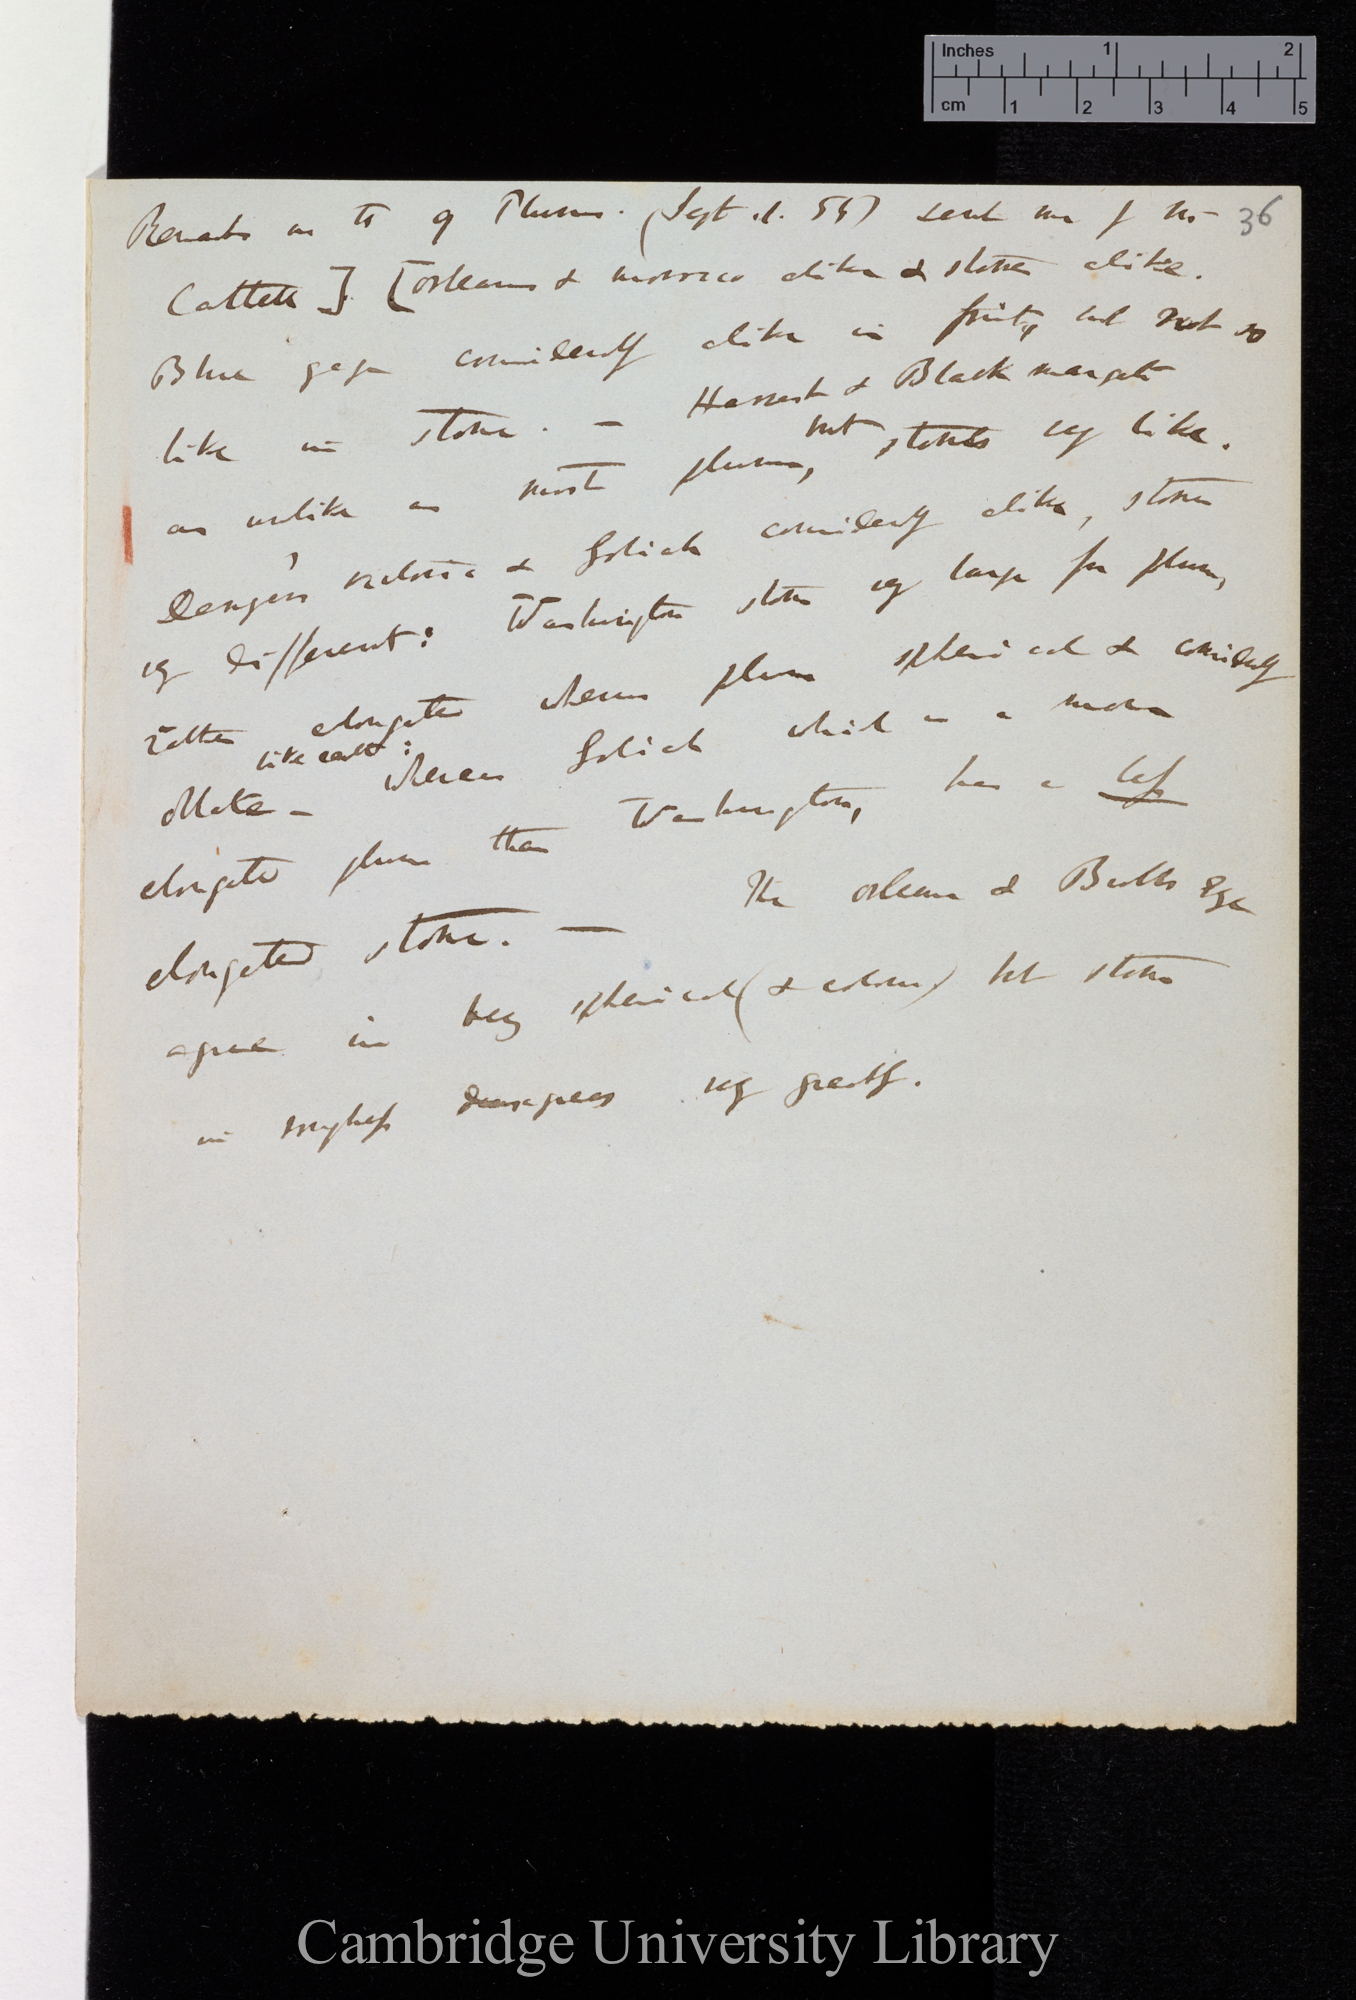 Inches 1 2
cm 1 2 3 4 5
36
Remarks on of Plums. (Sept. 55) sent me
Cattell] [Orleans & morocco alike & stones alike.
Blue gage considerably alike in fruit, but not so
like in stone. — Harvest & Black margate
as unlike as most plums, but stones very like.
Denyer's victoria & Goliath considerably alike, stones
very different: Washington stone very large for plum,
rather elongated whereas plum spherical & considerably
oblate — like earth: whereas Goliath which is a more
elongated plum than Washington, has a less
elongated stone. — The Orleans & Bullocks Eye
agree in being spherical (& colour) but stones
in roughness disagrees very greatly.
Cambridge University Library